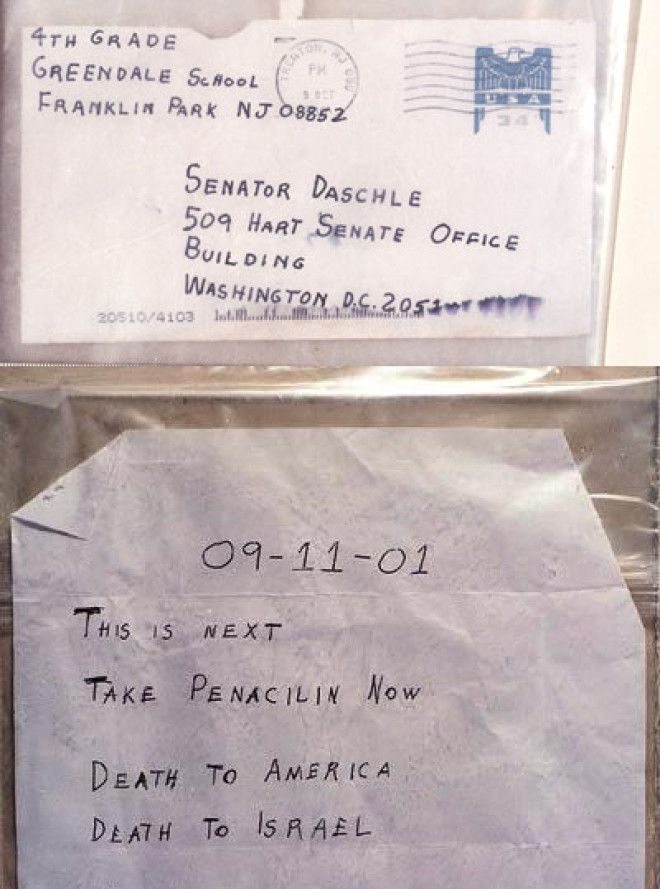 4TH GRADE
GREENDALE SCHOOL
FRANKLIN PARK NJ 08852
TRENTON, NJ
PM
9 OCT
USA
34
SENATOR DASCHLE
509 HART SENATE OFFICE
BUILDING
WASHINGTON D.C. 2051
20510/4103
09-11-01
THIS IS NEXT
TAKE PENACILIN NOW
DEATH TO AMERICA
DEATH TO ISRAEL